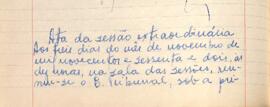 Ata da sessão extraordinária
Aos três dias do mês de novembro de
mil novecentos e sessenta e dois, às
dez horas, na sala das sessões, reu-
niu-se o E. Tribunal, sob a pre-